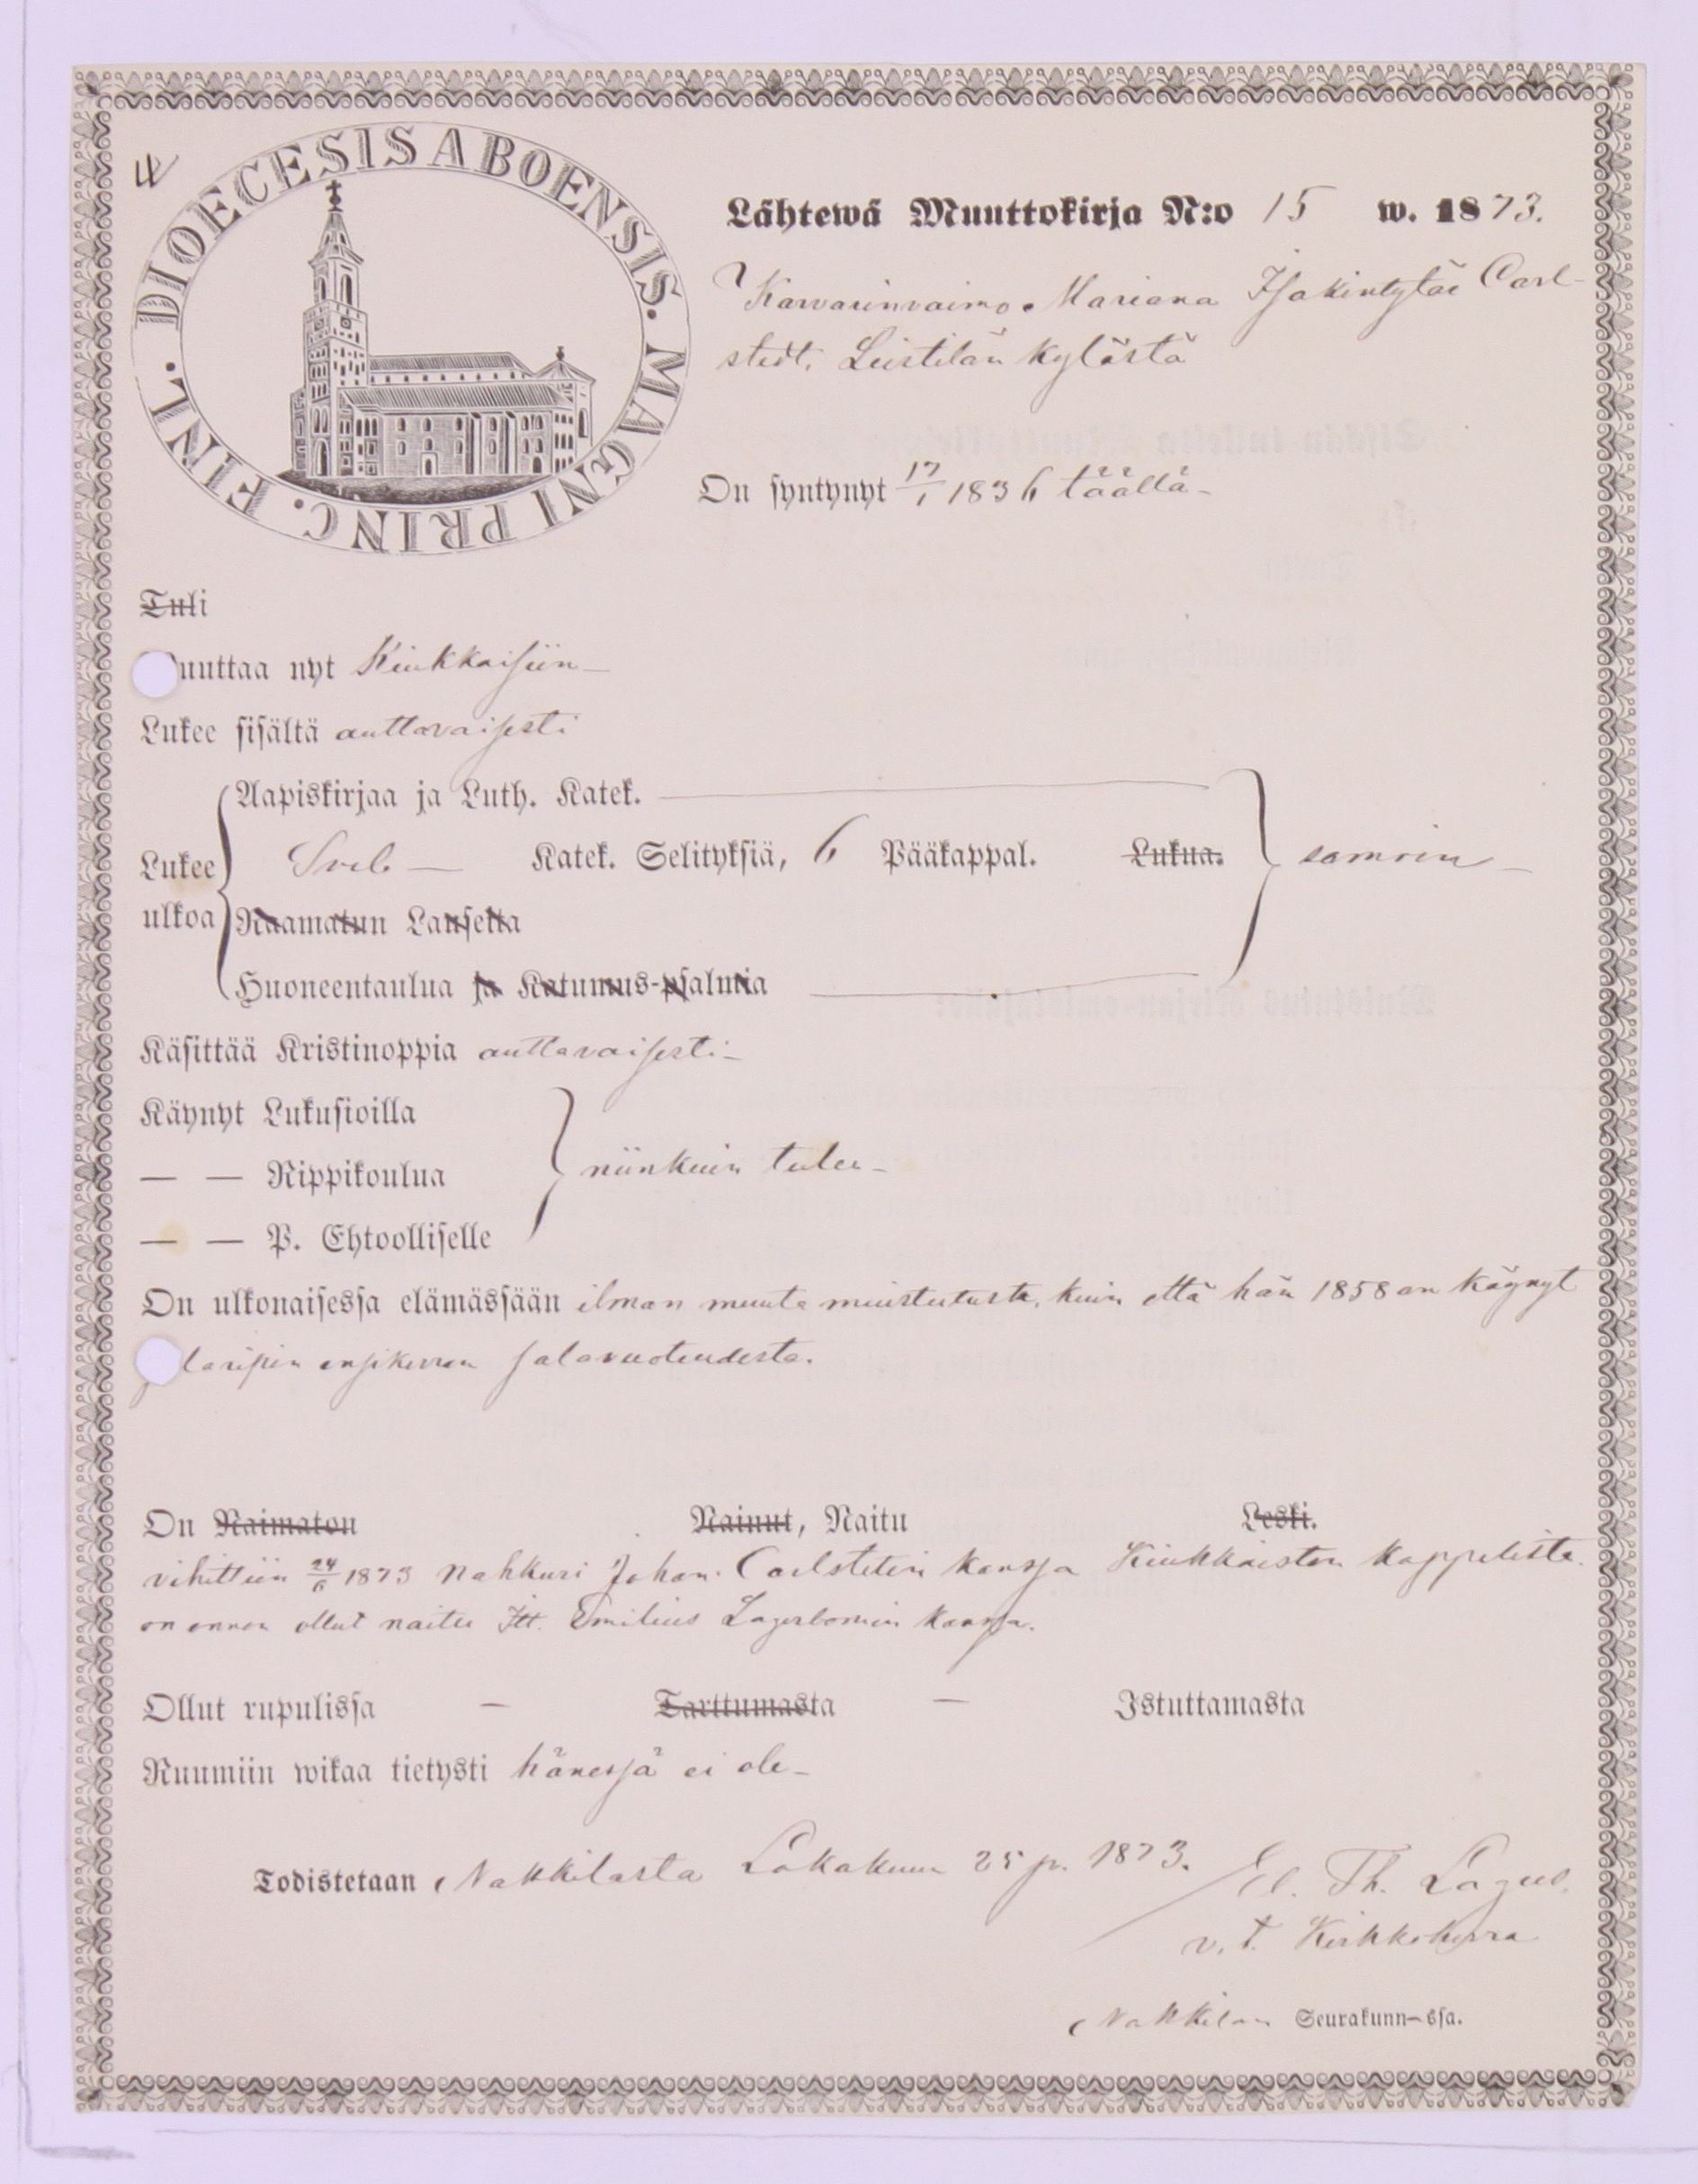 4
DIOECESIS ABOENSIS. MAGNI PRINC. FINL.
Lähtewä Muuttokirja N:o 15 w. 1873.
Karvarinvaimo Mariana Isakintytär Carl-
stedt, Leistilän kylästä
On syntynyt 17/1 1836 täällä-
Tuli
uuttaa nyt Kiukkaisiin-
Lukee sisältä auttavaisesti
Aapiskirjaa ja Luth. Katek.
Lukee Sveb- Katek. Selityksiä, 6 Pääkappal. Lukua. samoin-
ulkoa Raamatun Lauseita
Huoneentaulua ja Katumus-psalmia
Käsittää Kristinoppia auttavaisesti-
Käynyt Lukusioilla
— — Rippikoulua niinkuin tulee-
— — P. Ehtoolliselle
On ulkonaisessa elämässään ilman muuta muistutusta, kuin että hän 1858 on käynyt
laripin ensikerran salavuoteudesta.
On Naimaton Nainut, Naitu Leski.
vihittiin 24/6 1873 Nahkuri Johan Carlstetin kanssa Kiukkaisten kappelista.
on ennen ollut naitu Itt. Emilius Lagerbomin kanssa.
Ollut rupulissa — Tarttumasta — Istuttamasta
Ruumiin wikaa tietysti hänessä ei ole-
Todistetaan Nakkilasta Lokakuun 25 p. 1873. El. Th. Lagus.
v. t. Kirkkoherra
Nakkilan Seurakunn-ssa.